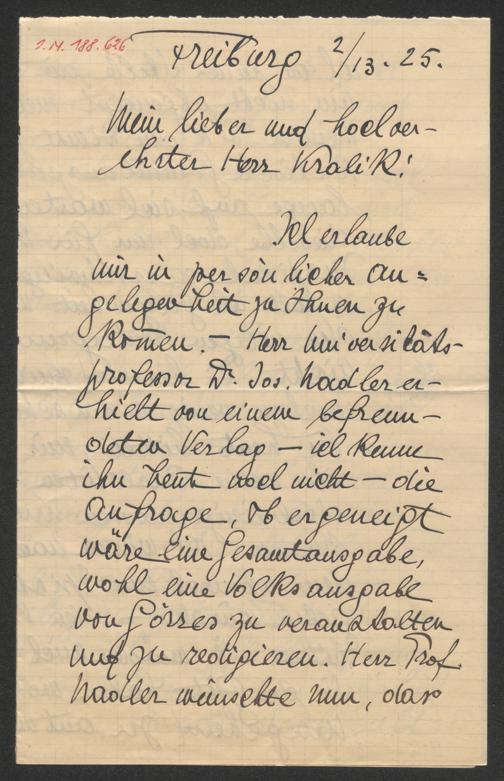 I.N. 188.626
Freiburg 2/13. 25.
Mein lieber und hochver-
ehrter Herr Kralik!
Ich erlaube
mir in persönlicher An-
gelegenheit zu Ihnen zu
kommen. – Herr Universitäts-
professor Dr. Jos. Nadler er-
hielt von einem befreun-
deten Verlag – ich kenne
ihn heut noch nicht – die
Anfrage, ob er geneigt
wäre eine Gesamtausgabe,
wohl eine Volksausgabe
von Görres zu veranstalten
und zu redigieren. Herr Prof.
Nadler wünschte nun, dass